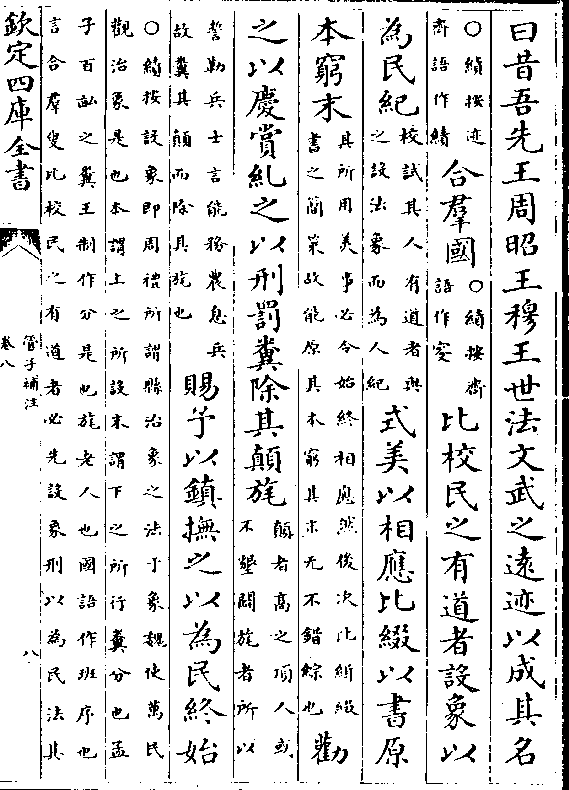 曰昔吾先王周昭王穆王世法文武之遠迹以成其名
○績按迹
齊語作績
合羣國
○績按齊
語作叟
比校民之有道者設象以
為民紀
校試其人有道者與
之設法象而為人紀
式美以相應比綴以書原
本窮末
其所用美事必令始終相應然後次比綴
書之簡策故能原其本窮其末无不錯綜也
勸
之以慶賞糺之以刑罰糞除其顛旄
顛者高之頂人或
不墾闢旄者所以
誓勒兵士言能務農息兵
故糞其顛而除其旄也
賜予以鎮撫之以為民終始
○績按設象即周禮所謂縣治象之法于象魏使萬民
觀治象是也本謂上之所設末謂下之所行糞分也孟
子百畝之糞王制作分是也旄老人也國語作班序也
言合羣叟比校民之有道者必先設象刑以為民法其
欽定四庫全書
管子補注
卷八
八